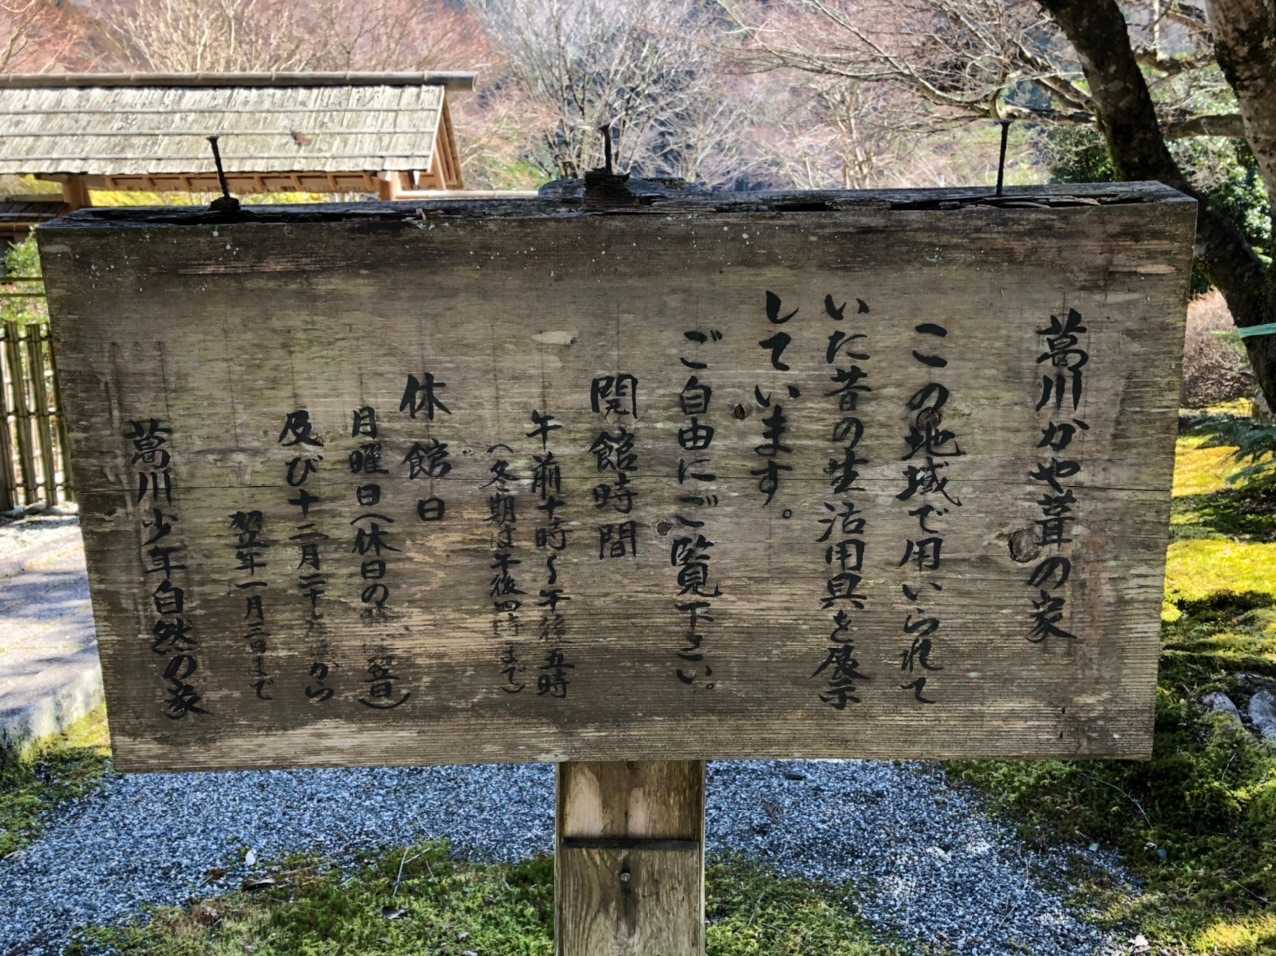 葛川かや葺の家
この地域で用いられて
いた昔の生活用具を展示
しています。
ご自由にご覧下さい。
開館時間
午前十時〜午後五時
(冬期は午後四時まで)
休館日
月曜日(休日の 翌日)
及び十二月二十 から
翌年一月 日まで
葛川少年自然の家